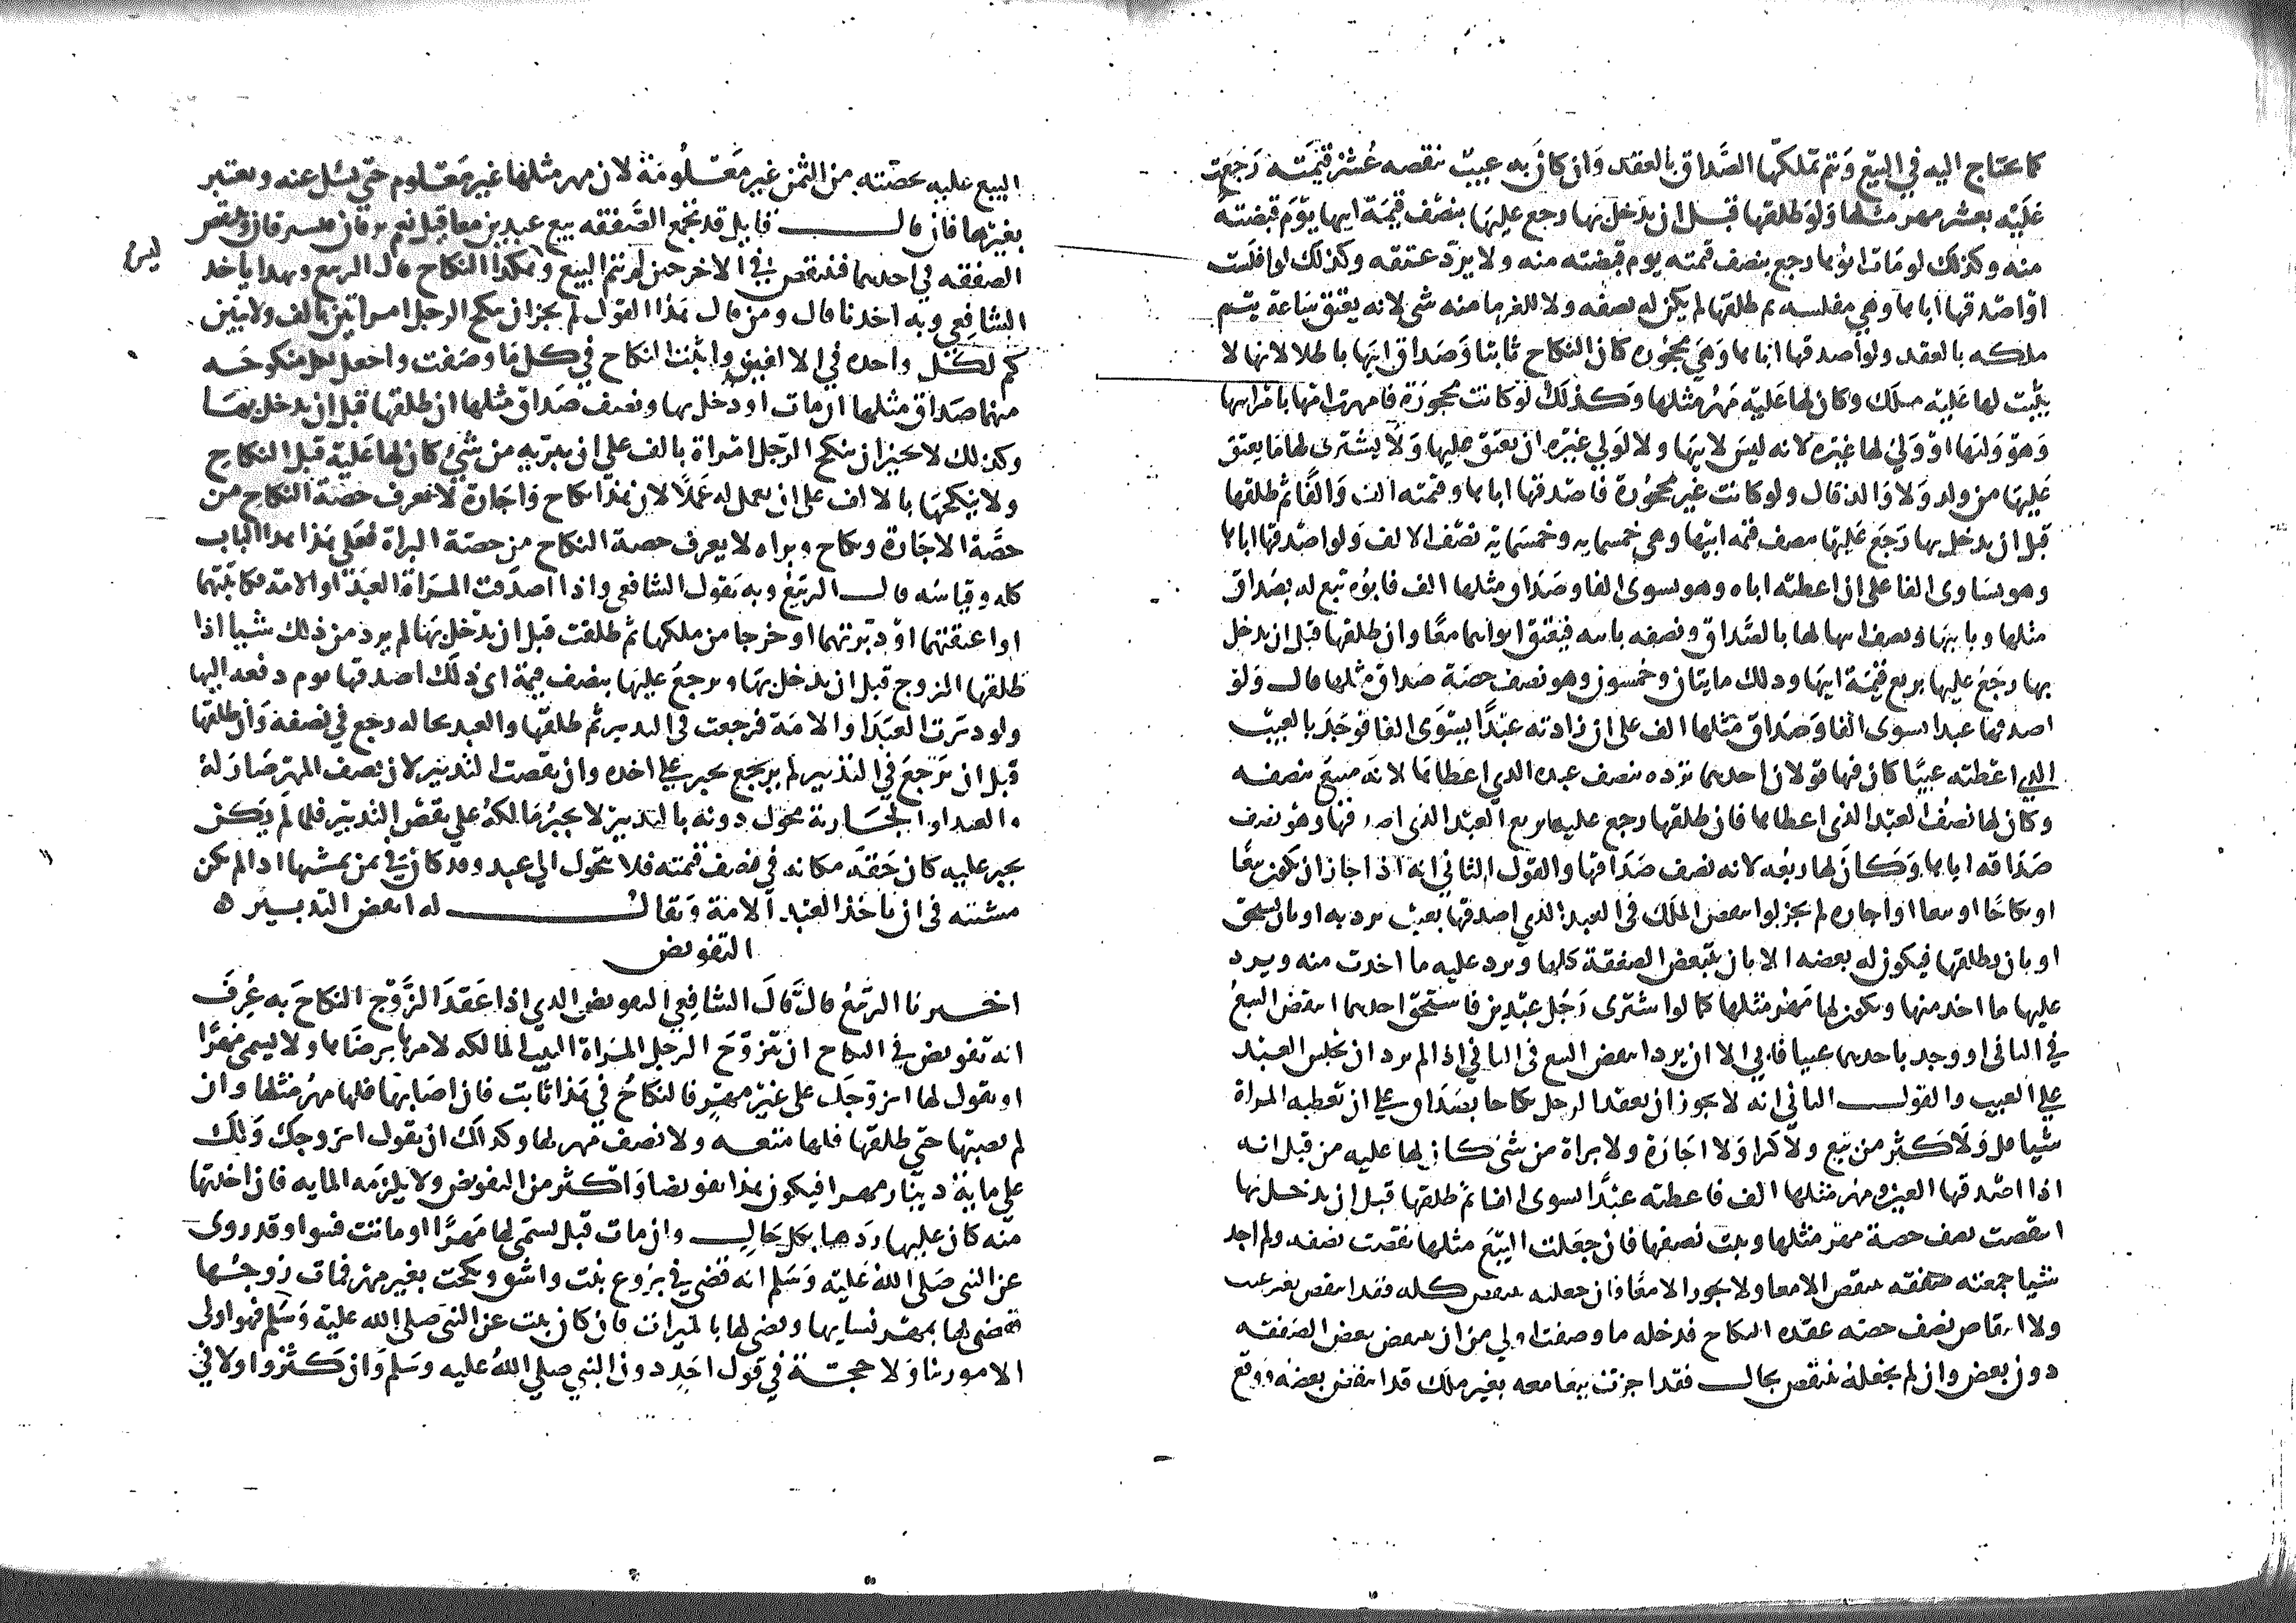 كما يحتاج اليه في البيع وتتم تملكها الصداق بالعقد وان كان به عيب ينقصه عشر قيمته رجعت
عليه بعشر مهر مثلها ولو طلقها قبل ان يدخل بها رجع عليها بنصف قيمة ابيها يوم قبضته
منه وكذلك لو مات ابوها رجع بنصف قيمته يوم قبضته منه ولا يرد عتقه وكذلك لو افلست
او اصدقها اباها وهي مفلسه ثم طلقها لم يكن له نصفه ولا للغرما منه شي لانه يعتق ساعة يتم
ملكه بالعقد ولو اصدقها اباها وهي محجوره كان النكاح ثابتا وصداق ابيها باطلا لانها لا
يثبت لها عليه ملك وكان لها عليه مهر مثلها وكذلك لو كانت محجورة فامهرت امها بامرابيها
وهو وليها او ولي لها غيره لانه ليس لابيها ولا لولي غيره ان يعتق عليها ولا يشترى لها ما يعتق
عليها من ولد ولا والد قال ولو كانت غير محجورة فاصدقها اباها وقيمته الف والفا ثم طلقها
قبل ان يدخل بها رجع عليها بنصف قيمه ابيها وهي خمسمايه وخمسماية نصف الالف ولو اصدقها اباها
وهو يساوى الفا على ان اعطته اباه وهو يسوى الفا وصداق مثلها الف فابوه بيع له بصداق
مثلها وبابيها ونصف ابيها لها بالصداق ونصفه بابيه فيعتق ابواهما معا وان طلقها قبل ان يدخل
بها رجع عليها بربع قيمة ابيها وذلك مايتان وخمسون وهو نصف حصة صداق مثلها قال ولو
اصدقها عبدا يسوى الفا وصداق مثلها الف على ان زادته عبدا يسوى الفا فوجد بالعبد
الذي اعطته عيبا كان فيها قولان احدهما يرده بنصف عبده الذي اعطاها لانه مبيع بنصفه
وكان لها نصف العبد الذي اعطاها فان طلقها رجع عليها بربع العبد الذي اصدقها وهو نصف
صداقه اياها وكان لها ربعه لانه نصف صداقها والقول الثاني انه اذا جاز ان يكون بيعا
او نكاحا او بيعا او اجاره لم يجز لو انتقض الملك في العبد الذي اصدقها بعيب يرد به او بان يستحق
او بان يطلقها فيكون له بعضه الا بان ينتقض الصفقة كلها ويرد عليه ما اخدت منه ويرد
عليها ما اخد منها ويكون لها مهر مثلها كما لو اشترى رجل عبدين فاستحق احدهما انتقض البيع
في الثاني او وجد باحدهما عيبا فابى الا ان يرد انتقض البيع في الثاني اذا لم يرد ان يحبس العبد
علي العيب والقول الثاني انه لا يجوز ان يعقد الرجل نكاحا بصداق على ان تعطيه المراة
شيا قل ولا كثر من بيع ولا كرا ولا اجارة ولا براة من شي كان لها عليه من قبل انه
اذا اصدقها العبد ومهر مثلها الف فاعطته عبدا يسوى الفا ثم طلقها قبل ان يدخل بها
انتقضت نصف حصة مهر مثلها وثبت نصفها فان جعلت البيع مثلها نقضت نصفه ولم اجد
شيا جمعته صفقه ينتقض الا معا ولا يجوز الا معا فان جعلته ينتقض كله فقد انتقض بغير عيب
ولا انتقاص نصف حصه عقده النكاح فدخله ما وصفت اولي من ان ينتقض بعض الصفقه
دون بعض وان لم يجعله ينتقض بحال فقد اجزت بيعا معه بغير ملك قد انتقض بعضه ووقع
البيع عليه بحصته من الثمن غير معلومة لان مهر مثلها غير معلوم حتي يسئل عنه ويعتبر
بغيرها فان قال قايل قد تجمع الصفقه بيع عبدين معا قيل نعم
الصفقه في احدهما فتنتقض في الاخر حين لم يتم البيع وهكذا النكاح قال الربيع وبهذا ياخذ
ليس
الشافعي وبه اخدنا قال ومن قال هذا القول لم يجز ان ينكح الرجل امراتين بالف ولا تبين
كم لكل واحده في الالف واثبتنا النكاح في كل ما وصفت واجعل لكل منكوحه
منهما صداق مثلها ان مات او دخل بها ونصف صداق مثلها ان طلقها قبل ان يدخل بها
وكذلك لا يجيز ان ينكح الرجل امراة بالف على ان تبريه من شي كان لها عليه قبل النكاح
ولا ينكحها بالالف على ان يعمل له عملا لان هذا نكاح واجارة لا تعرف حصة النكاح من
حصة الاجارة ونكاح وبراه لا يعرف حصة النكاح من حصة البراة فعلى هذا هذا الباب
كله وقياسه قال الربيع وبه يقول الشافعي واذا اصدقت المراة العبد او الامة فكاتبتهما
او اعتقتهما او دبرتهما او خرجا من ملكها ثم طلقت قبل ان يدخل بها لم يرد من ذلك شيا اذا
طلقها الزوج قبل ان يدخل بها ويرجع عليها بنصف قيمة اى ذلك اصدقها يوم دفعه اليها
ولو دبرت العبد او الامة فرجعت في التدبير ثم طلقها والعبد بحاله رجع في نصفه وان طلقها
قبل ان ترجع في التدبير لم يرجع يجبر علي اخده وان نقضت التدبير لان نصف المهر صار له
والعبد او الجارية محول دونه بالتدبير لا يجبر مالكه على نقض التدبير فلما لم يكن
يجبر عليه كان حقه مكانه في نصف قيمته فلا يتحول الي عبد وقد كان في ثمن اذا لم يكن
مشيته في ان ياخذ العبد والامة ويقال له انقض التدبير ه
التفويض
اخبرنا الربيع قال قال الشافعي التفويض الذي اذا عقد الزوج النكاح به عرف
انه تفويض في النكاح ان يتزوج الرجل المراة الثيب المالكه لامرها برضاها ولا يسمى مهرا
او يقول لها اتزوجك على غير مهر فالنكاح في هذا ثابت فان اصابها فلها مهر مثلها وان
لم يصبها حتى طلقها فلها متعه ولا نصف مهر لها وكذلك ان يقول اتزوجك ولك
على ماية دينار مهرا فيكون هذا تفويضا واكثر من التفويض ولا يلزمه المايه فان اخذتها
منه كان عليها ردها بكل حال وان مات قبل يسمى لها مهرا او ماتت فسوا وقد روى
عن النبي صلى الله عليه وسلم انه قضى في بزوع بنت واشق ونكحت بغير مهر فمات زوجها
فقضى لها بمهر نسايها وقضى لها بالميراث فان كان يثبت عن النبي صلى الله عليه وسلم فهو اولى
الامور بنا ولا حجة في قول احد دون النبي صلي الله عليه وسلم وان كثروا ولا في